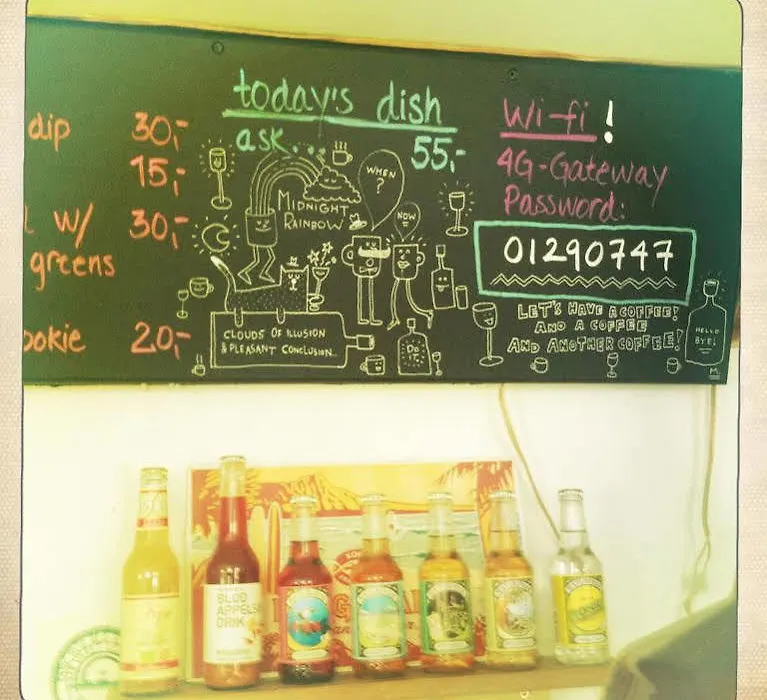 today's dish
ask...
55,-
dip 30,-
15,-
w/ 30,-
greens
ookie 20,-
WHEN
?
NOW
=
MIDNIGHT
RAINBOW
CLOUDS OF ILLUSION
& PLEASANT CONCLUSION...
DO
IT.
Wi-fi!
4G-Gateway
Password:
01290747
LET'S HAVE A COFFEE!
AND A COFFEE
AND ANOTHER COFFEE!
HELLO
BYE!
M.
BLOD
APPELSIN
DRIK